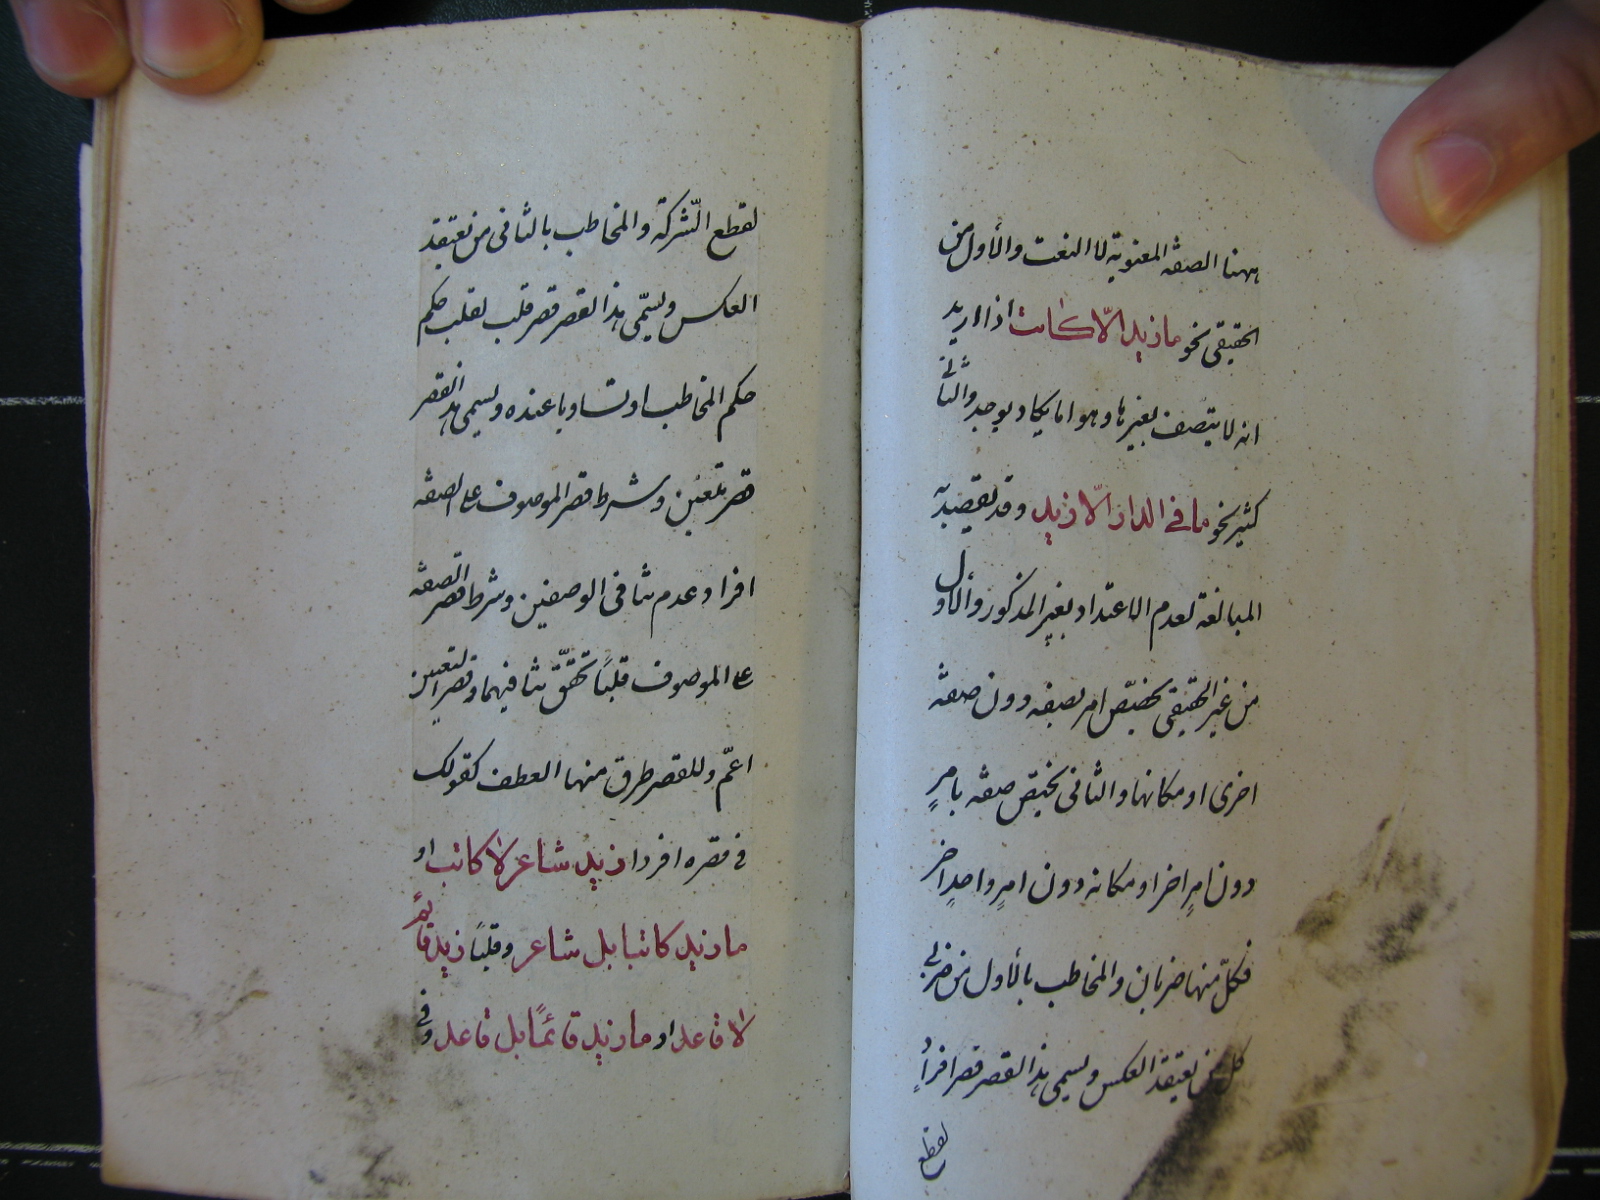 ههنا الصفة المعنوية لا النعت والأول من
الحقيقي نحو ما زيد الّا كاتب اذا اريد
انه لا يتصف بغيرها وهو اما يكاد يوجد والثاني
كثير نحو ما في الدار الّا زيد وقد يقصد به
المبالغة لعدم الاعتداد بغير المذكور والأول
من غير الحقيقي تخصيص امر بصفة دون صفة
اخرى او مكانها والثاني تخصيص صفة بامرٍ
دون امرٍ اخر او مكانه دون امرٍ واحدٍ اخر
فكلّ منها ضربان والمخاطب بالأول من ضربي
كل من يعتقد العكس ويسمى هذا القصر قصر افرادٍ
لقطع
لقطع الشّركة والمخاطب بالثاني من يعتقد
العكس ويسمّى هذا القصر قصر قلب لقلب حكم
حكم المخاطب او تساويا عنده ويسمى هذا القصر
قصر تعيّن وشرط قصر الموصوف على الصفة
افراد عدم تنافي الوصفين وشرط قصر الصفة
على الموصوف قلبًا تحقّق تنافيهما وقصر التعيين
اعمّ وللقصر طرق منها العطف كقولك
في قصره افردا زيد شاعر لا كاتب او
ما زيد كاتبا بل شاعر وقلبًا زيد قائمٌ
لا قاعد او ما زيد قائمًا بل قاعد وفي